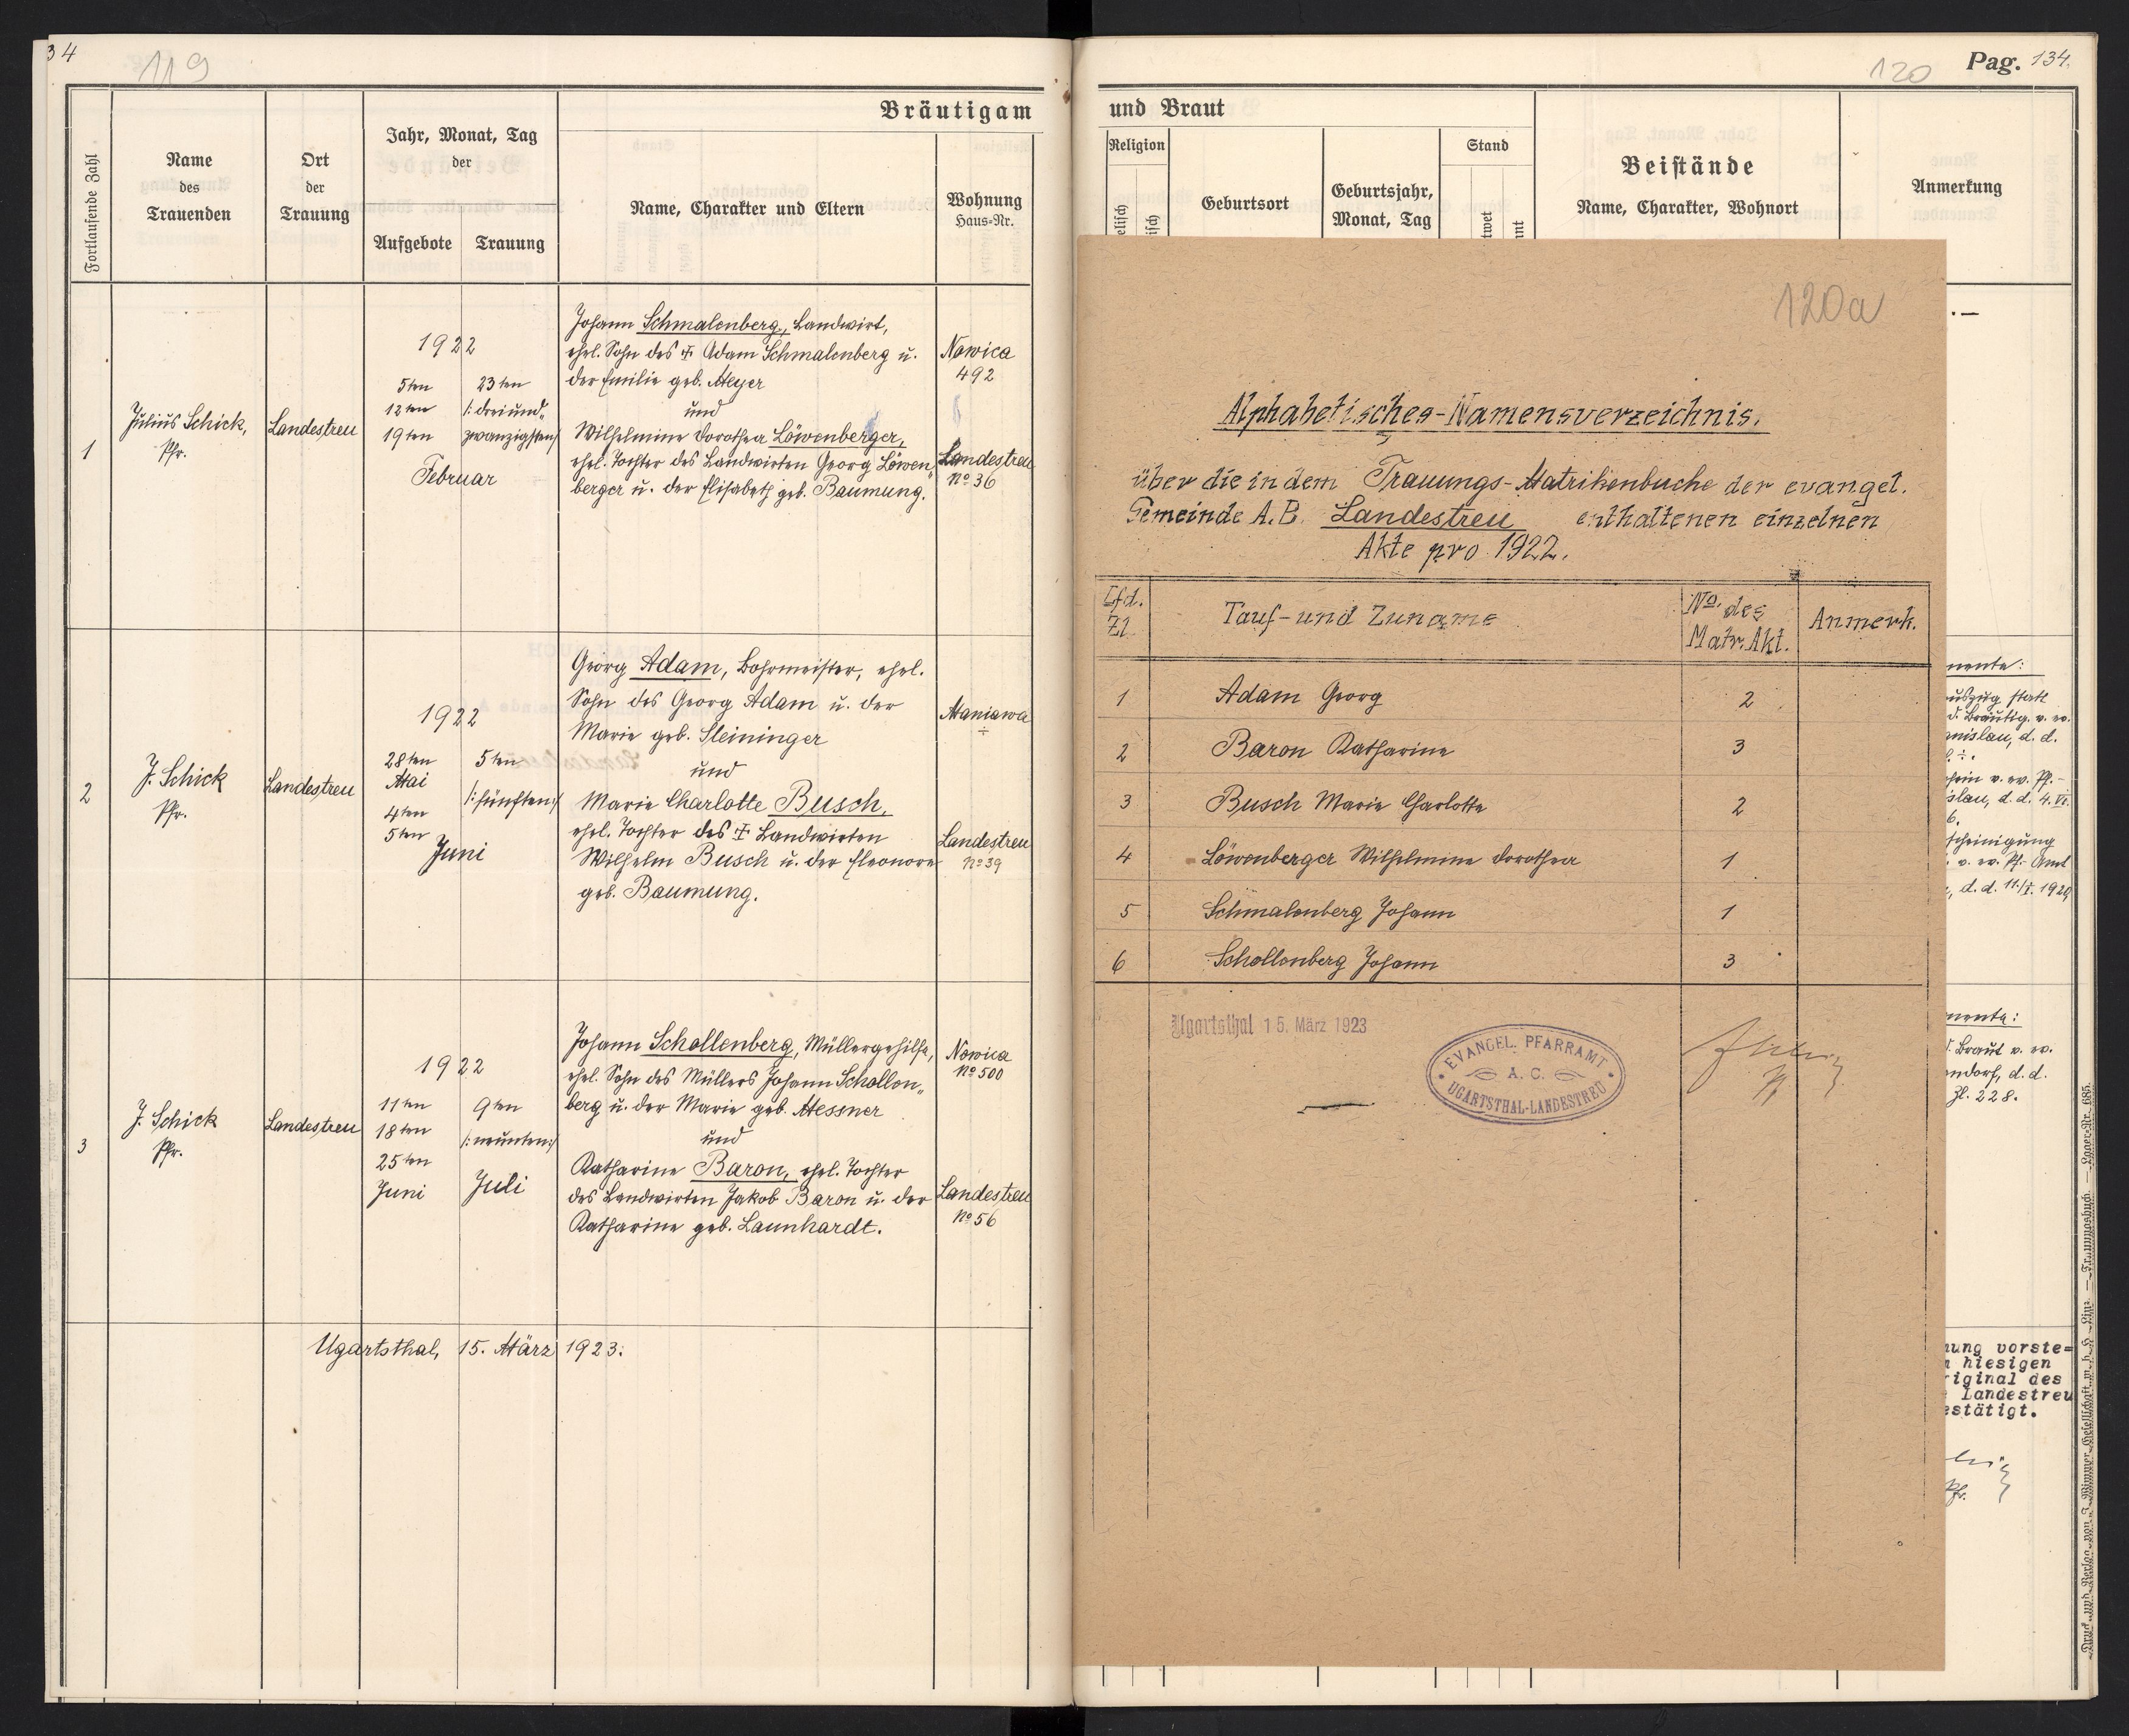 34
119
Bräutigam
Fortlaufende Zahl
Name
des
Trauenden
Ort
der
Trauung
Jahr, Monat, Tag
der
Aufgebote
Trauung
Name, Charakter und Eltern
Wohnung
Haus-Nr.
1
Julius Schick,
Pfr.
Landestreu
1922
5ten
12ten
19ten
23ten
/:dreiund„
zwanzigsten:/
Februar
Johann Schmalenberg, Landwirt,
ehel. Sohn des ‡ Adam Schmalenberg u.
der Emilie geb. Meyer
und
Wilhelmine Dorothea Löwenberger,
ehel. Tochter des Landwirten Georg Löwen„
berger u. der Elisabeth geb. Baumung.
Nowica
492
Landestreu
No 36
2
J. Schick
Pfr.
Landestreu
1922
28ten
Mai
4ten
5ten
Juni
5ten
/:fünften:/
Georg Adam, Bohrmeister, ehel.
Sohn des Georg Adam u. der
Marie geb. Steininger
und
Marie Charlotte Busch,
ehel. Tochter des ‡ Landwirten
Wilhelm Busch u. der Eleonore
geb. Baumung.
Maniawa
÷
Landestreu
No 39
3
J. Schick
Pfr.
Landestreu
1922
11ten
18ten
25ten
Juni
9ten
/:neunten:/
Juli
Johann Schollenberg, Müllergehilfe,
ehel. Sohn des Müllers Johann Schollen„
berg u. der Marie geb. Messner
und
Katharine Baron, ehel. Tochter
des Landwirten Jakob Baron u. der
Katharine geb. Launhardt.
Nowica
No 500
Landestreu
No 56
Ugartsthal, 15. März 1923.
120
Pag. 134.
und Braut
Religion
elisch
isch
Geburtsort
Geburtsjahr,
Monat, Tag
Stand
twet
nt
Beistände
Name, Charakter, Wohnort
Anmerkung
120a
Alphabetisches-Namensverzeichnis.
über die in dem Trauungs-Matrikenbuche der evangel.
Gemeinde A.B. Landestreu enthaltenen einzelnen
Akte pro 1922.
Lfd.
Zl.
Tauf-und Zuname
No. des
Matr. Akt.
Anmerk.
1 Adam Georg 2
2 Baron Katharine 3
3 Busch Marie Charlotte 2
4 Löwenberger Wilhelmine Dorothea 1
5 Schmalenberg Johann 1
6 Schollenberg Johann 3
Ugartsthal 15. März 1923
EVANGEL. PFARRAMT
A. C.
UGARTSTHAL-LANDESTREU
mente:
uszug statt
d. Bräutig. v. ev.
anislau, d. d.
hein v. ev. Pf.-
slau, d. d. 4. VI.
6.
scheinigung
v. ev. Pf.-Amt
, d. d. 11./I. 1920
mente:
d. Braut v. ev.
ndorf, d. d.
Zl. 228.
nung vorste=
n hiesigen
riginal des
Landestreu
estätigt.
Pfr.
Druck und Verlag von J. Wimmer Gesellschaft m. b. H. Linz. — Trauungsbuch. — Lager-Nr. 685.